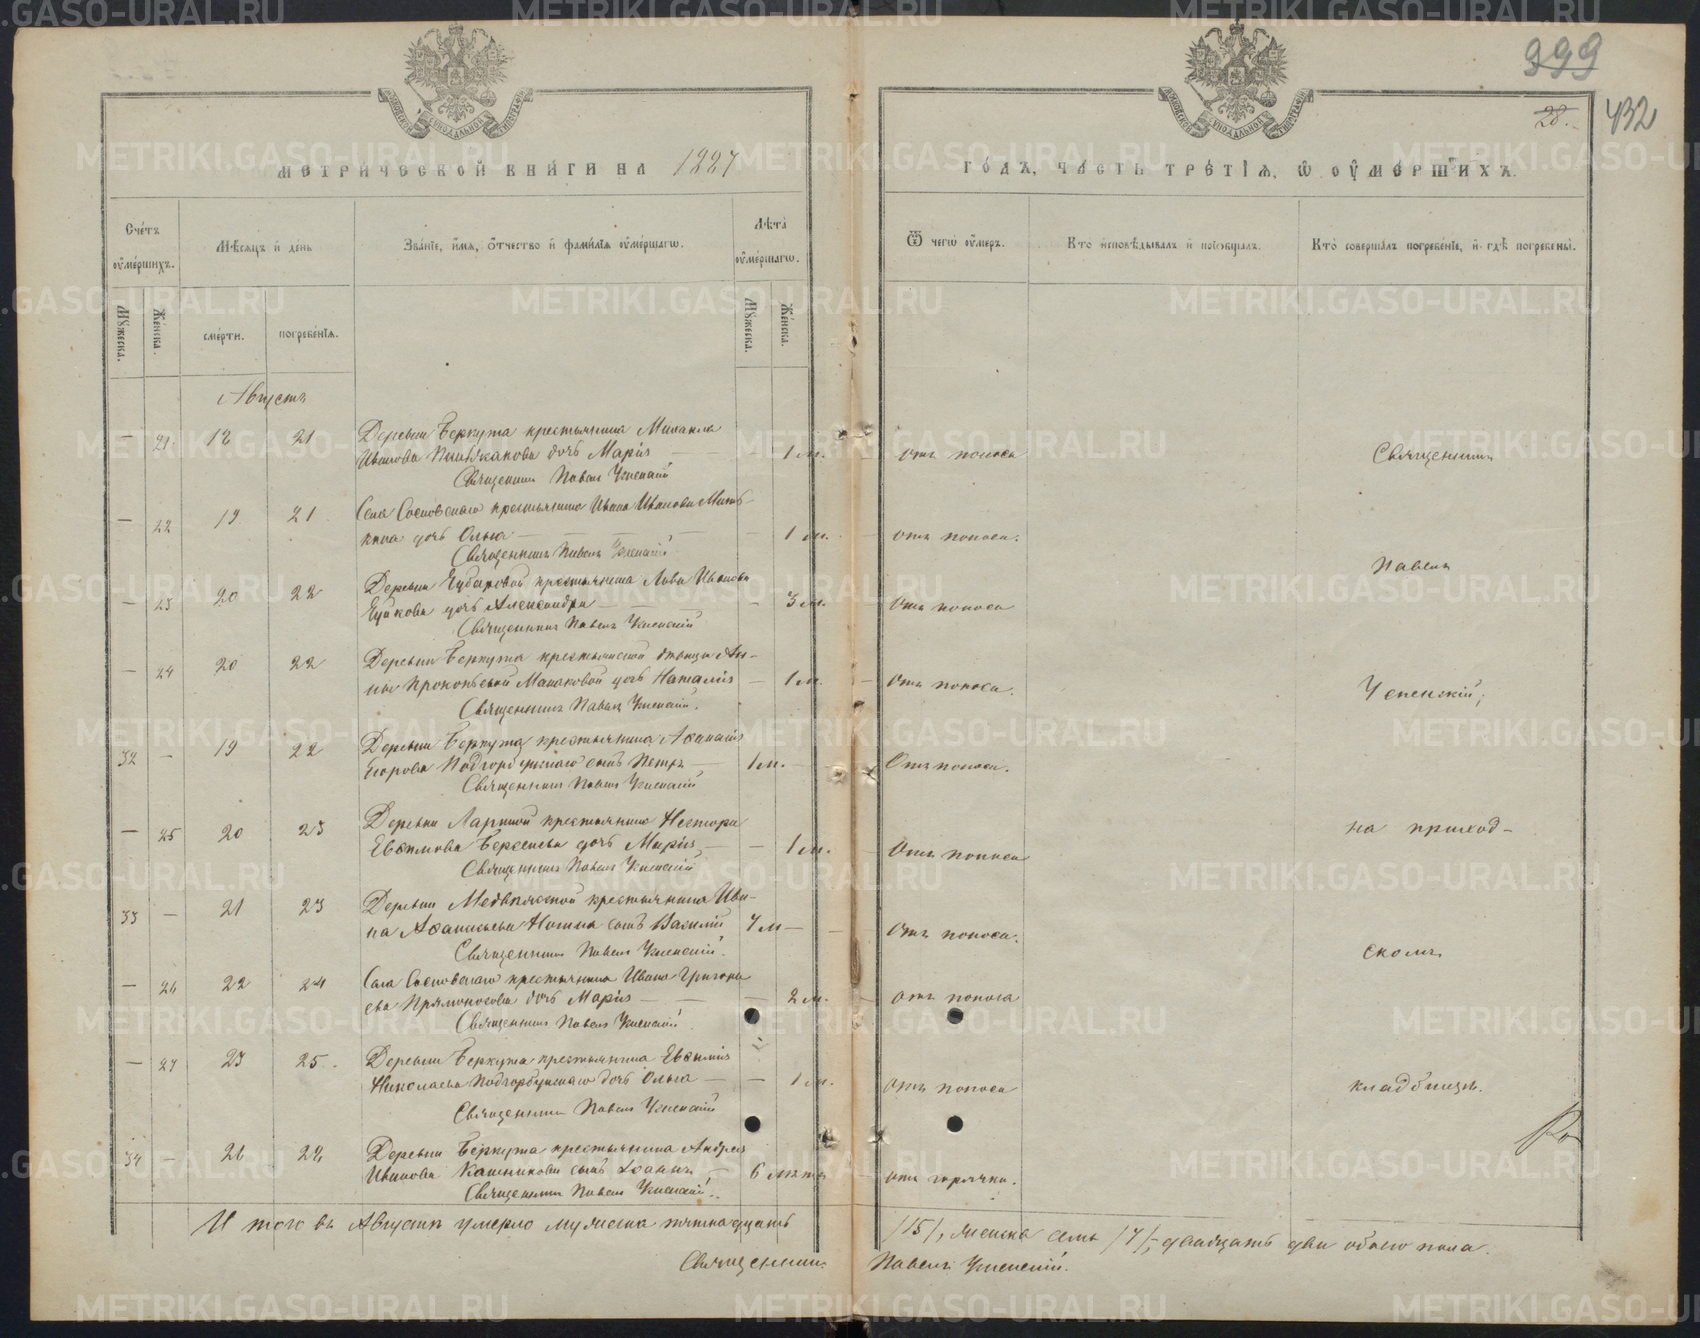 399
28.
432
МЕТРИЧЕСКОЙ КНИГИ НА 1887
ГОДЪ, ЧАСТЬ ТРЕТІѦ, Ѿ ОУМЕРШИХЪ.
Счетъ оумершихъ.
Мѣсяцъ и день
Званіе, имя, отчество и фамилія оумершагѡ.
Лѣта оумершагѡ.
Ѿ чегѡ оумеръ.
Кто исповѣдывалъ и пріобщалъ.
Кто совершалъ погребеніе, и гдѣ погребены.
Мужеска.
Женска.
смерти.
погребенія.
Мужеска.
Женска.
Августъ
— 21. 18 21 Деревни Беркута крестьянина Михаила
Иванова дочь Марія — 1 м. отъ поноса Священникъ
Священникъ Павелъ Успенскій
— 22 19 21 Села Сосновскаго крестьянина Ивана Иванова
дочь Ольга — 1 м. отъ поноса.
Священникъ Павелъ Успенскій
Павелъ
— 23 20 22 Деревни крестьянина Льва Иванова
дочь Александра — 3 м. отъ поноса
Священникъ Павелъ Успенскій
— 24 20 22 Деревни Беркута крестьянской дѣвицы Ан-
ны Прокопьевой дочь Наталія — 1 м. отъ поноса. Успенскій,
Священникъ Павелъ Успенскій.
32 — 19 22 Деревни Беркута крестьянина Аѳанасія
Егорова Подгорбунскаго сынъ Петръ — 1 м. — Отъ поноса.
Священникъ Павелъ Успенскій
— 25 20 23 Деревни крестьянина Нестора на приход-
Евѳимова дочь Марія — 1 м. Отъ поноса
Священникъ Павелъ Успенскій
33 — 21 23 Деревни крестьянина Ива-
на Аѳанасьева сынъ Василій 7 м — отъ поноса.
Священникъ Павелъ Успенскій.
скомъ
— 26 22 24 Села Сосновскаго крестьянина Ивана Григорь-
ева Прямоносова дочь Марія — 2 м. отъ поноса
Священникъ Павелъ Успенскій
— 27 23 25. Деревни Беркута крестьянина Евѳимія
Николаева Подгорбунскаго дочь Ольга — 1 м. отъ поноса кладбищѣ.
Священникъ Павелъ Успенскій
34 — 26 28 Деревни Беркута крестьянина Андрея
Иванова сынъ Іоаннъ — 6 лѣтъ отъ горячки.
Священникъ Павелъ Успенскій.
И того въ Августѣ умерло мужеска пятнадцать /15/, женска семь /7/, двадцать два обоего пола.
Священникъ Павелъ Успенскій.
METRIKI.GASO-URAL.RU